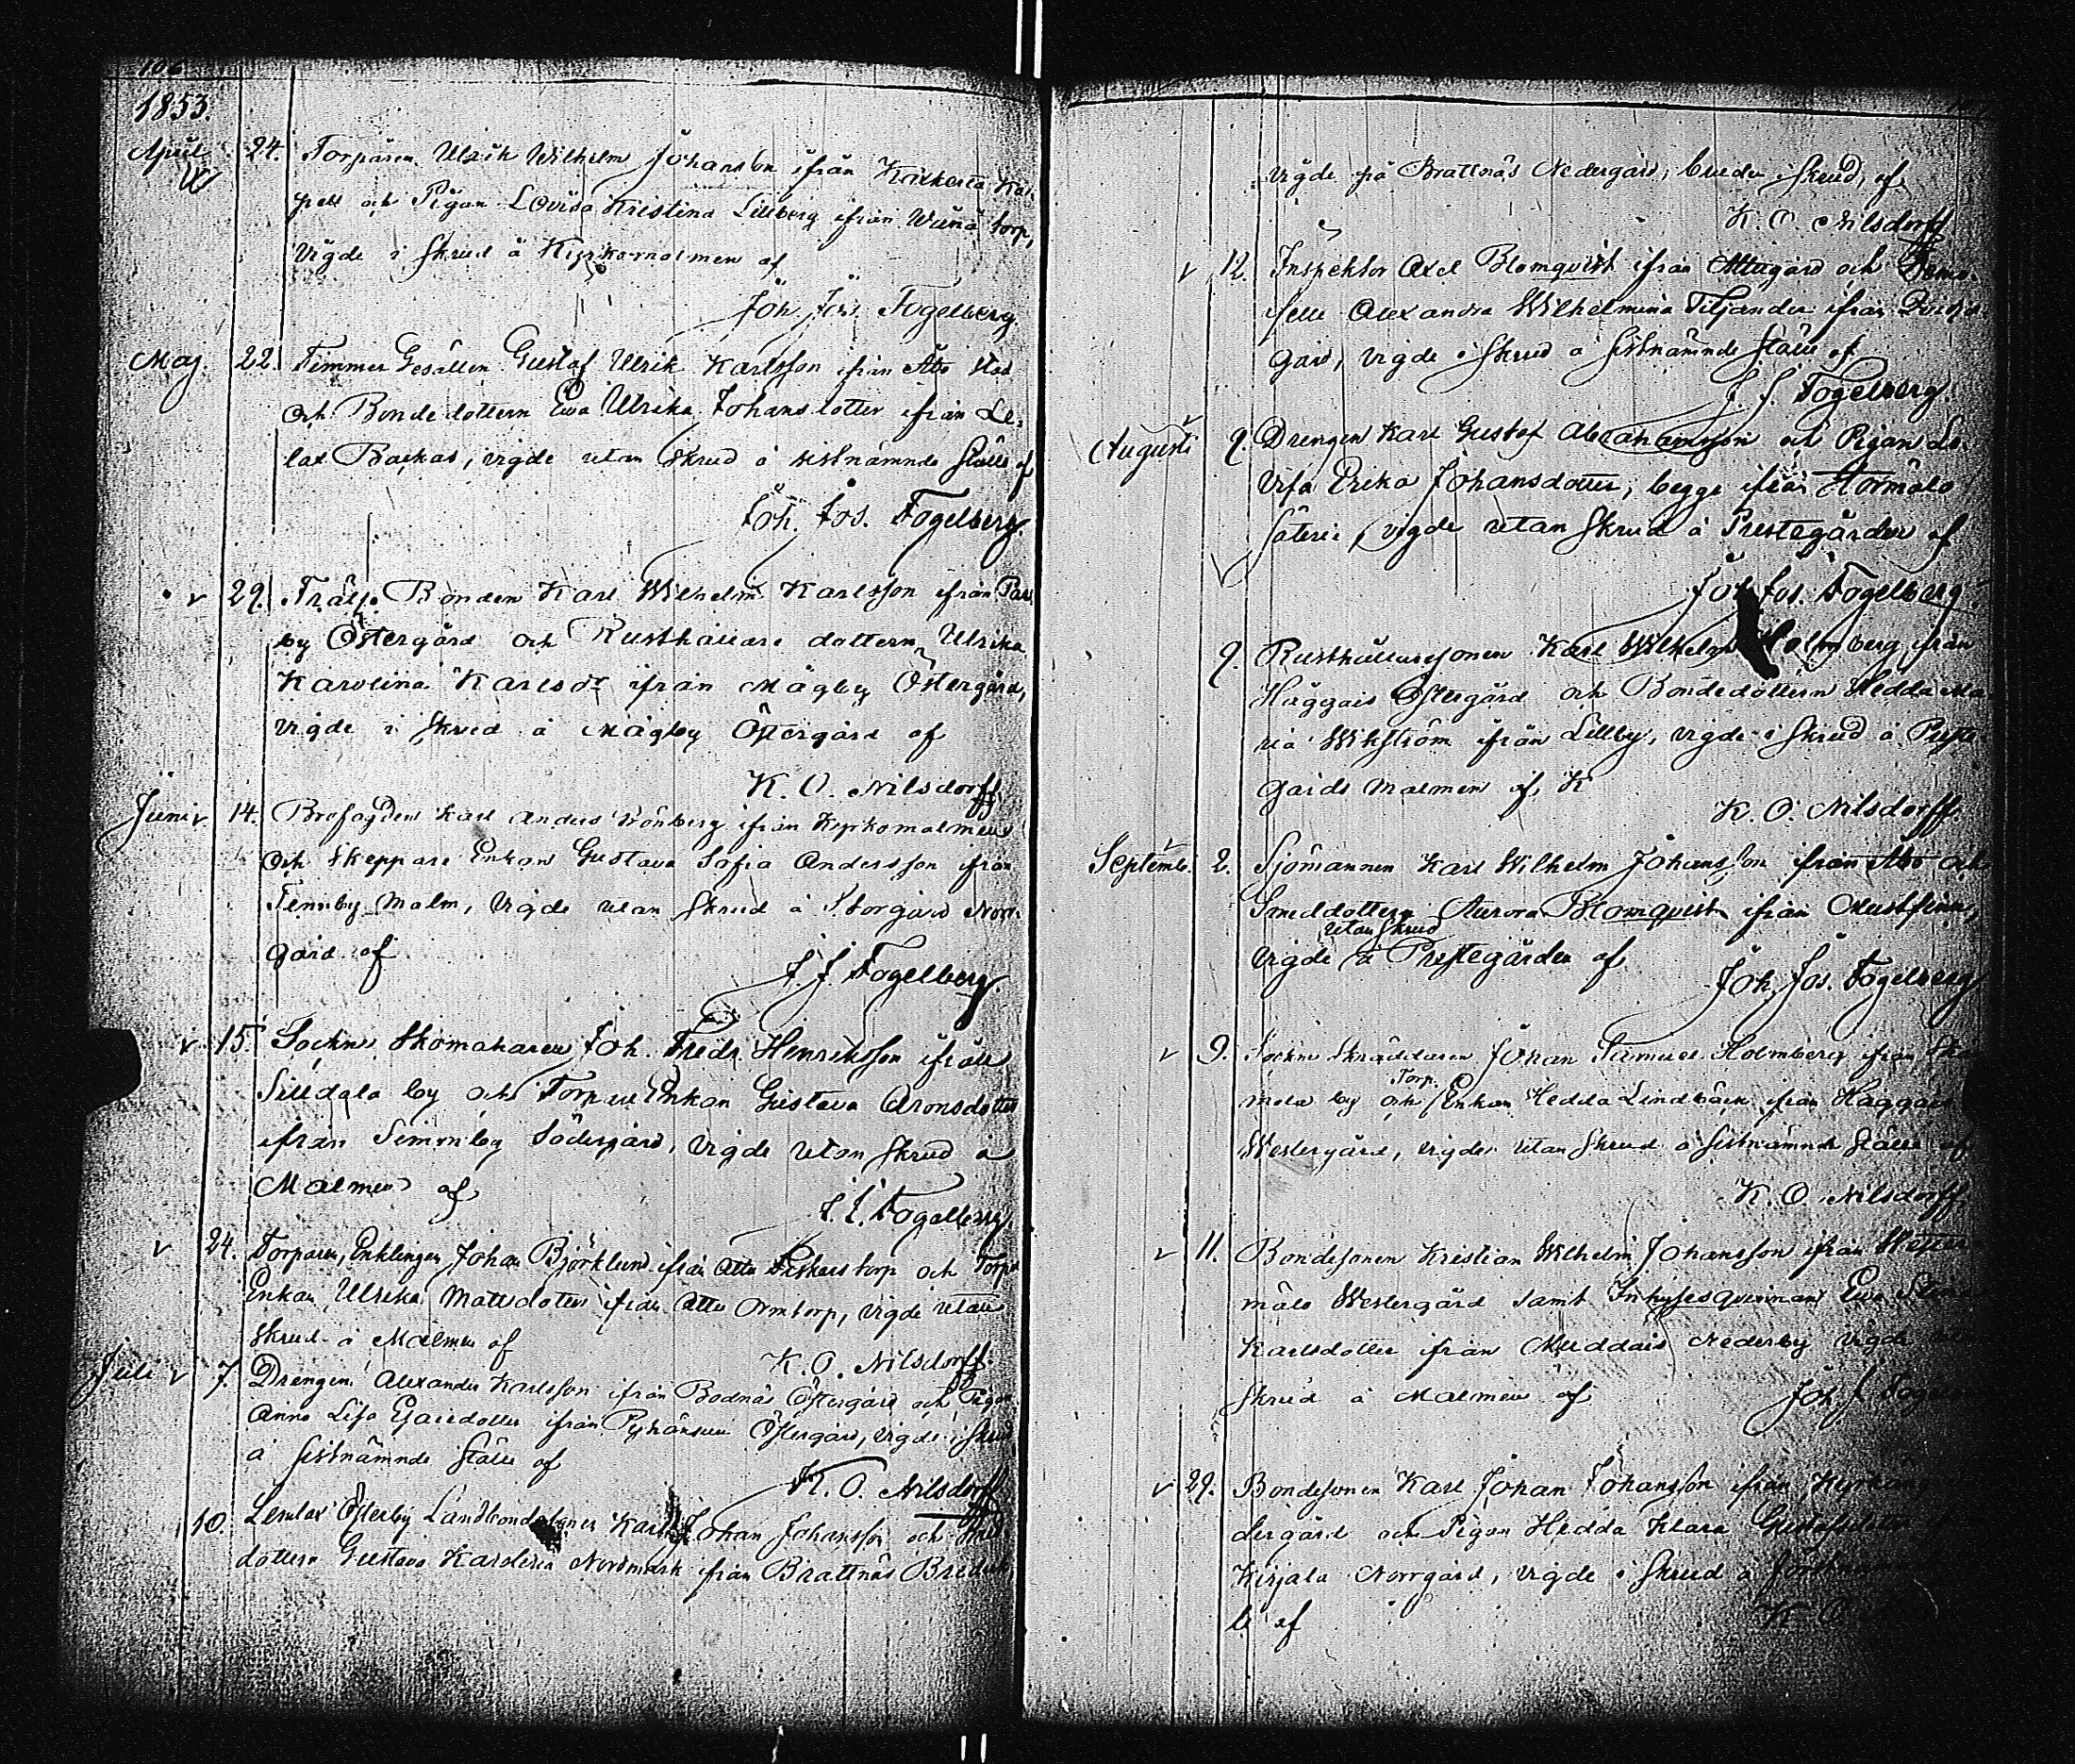 106
1853.
April 24. Torparen Ulrik Wilhelm Johansson ifrån Ka-
pell och Pigan Lovisa Kristina Lillberg ifrån torp,
Vigde i Skrud å Kyrkomalmen af
Joh. Jos. Fogelberg.
Maj. 22. Timmer Gesällen Gustaf Ulrik Karlsson ifrån Åbo stad
och Bondedottern Eva Ulrika Johansdotter ifrån Le-
lax Backas, vigde utan Skrud å sistnämnde Ställe af
Joh. Jos. Fogelberg.
v 29. Frälse Bonden Karl Wilhelm Karlsson ifrån Par
by Östergård och Rusthållare dottern Ulrika
Karolina Karlsdr ifrån Mågby Östergård,
Vigde i Skrud å Mågby Östergård af
K. O. Nilsdorff
Juni v 14. Brofogden Karl Anders Grönberg ifrån Kyrkomalmen
och Skeppare Enkan Gustava Sofia Andersson ifrån
Tennby Malm, Vigde utan Skrud å Storgård Norr-
gård af
J. J. Fogelberg.
v 15. Sockne Skomakaren Joh. Fredr. Henriksson ifrån
Sildala by och Torpare Enkan Gustava Aronsdotter
ifrån Simonby Södergård, Vigde utan Skrud å
Malmen af
J. J. Fogelberg.
v 24. Torparen, Enklingen Johan Björklund ifrån Attu Fiskars torp och Torp.
Enkan Ulrika Mattsdotter ifrån Attu Ormtorp, vigde utan
skrud å Malmen af
K. O. Nilsdorff.
Juli v 7. Drengen Alexander Karlsson ifrån Bodnäs Östergård och Pigan
Anna Lisa Ejarsdotter ifrån Pyhänsuu Östergård, vigde i Skrud
å sistnämnde Ställe af
K. O. Nilsdorff
10. Lemlax Österby Landbondesonen Karl Johan Johansson och
dottern Gustava Karolina Nordmark ifrån Brattnäs
Vigde på Brattnäs Nedergård, bruden i Skrud, af
K. O. Nilsdorff
v 12. Inspektor Axel Blomqvist ifrån Attugård och Demo-
iselle Alexandra Wilhelmina Tiljander ifrån
gård, vigde i Skrud å sistnämnde Ställe af
J. J. Fogelberg.
Augusti 9. Drengen Karl Gustaf Abrahamsson och Pigan Lo-
visa Erika Johansdotter, begge ifrån Stormälö
Säteri, vigde utan Skrud å Prestegården af
Joh. Jos. Fogelberg.
9. Rusthållaresonen Karl Wilhelm Holmberg ifrån
Häggais Östergård och Bondedottern Hedda Ma-
ria Wikström ifrån Lillby, vigde i Skrud å Preste
gårds Malmen af, K
K. O. Nilsdorff.
Septemb. 2. Sjömannen Karl Wilhelm Johansson ifrån Åbo och
Smeddottern Aurora Blomqvist ifrån Mustfinn,
utan Skrud
Vigde å Prestegården af
Joh. Jos. Fogelberg
v 9. Sockne Skräddaren Johan Samuel Holmberg ifrån
Torp.
mola by och Enkan Hedda Lindbäck ifrån Häggais
Westergård, vigde utan Skrud å sistnämnde Ställe af
K. O. Nilsdorff.
v 11. Bondesonen Kristian Wilhelm Johansson ifrån
målö Westergård samt Inhysesqvinnan Eva Stina
Karlsdotter ifrån Muddais Nederby vigde utan
Skrud å Malmen af Joh. J. Foge
v 29. Bondesonen Karl Johan Johansson ifrån
dergård och Pigan Hedda Klara Gustafsdotter
Kirjala Norrgård, vigde i Skrud å
le af K. O.